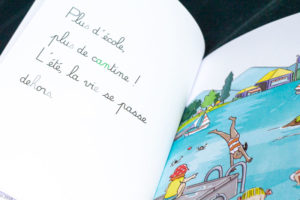 Plus d'école,
plus de cantine !
L'été, la vie se passe
dehors.